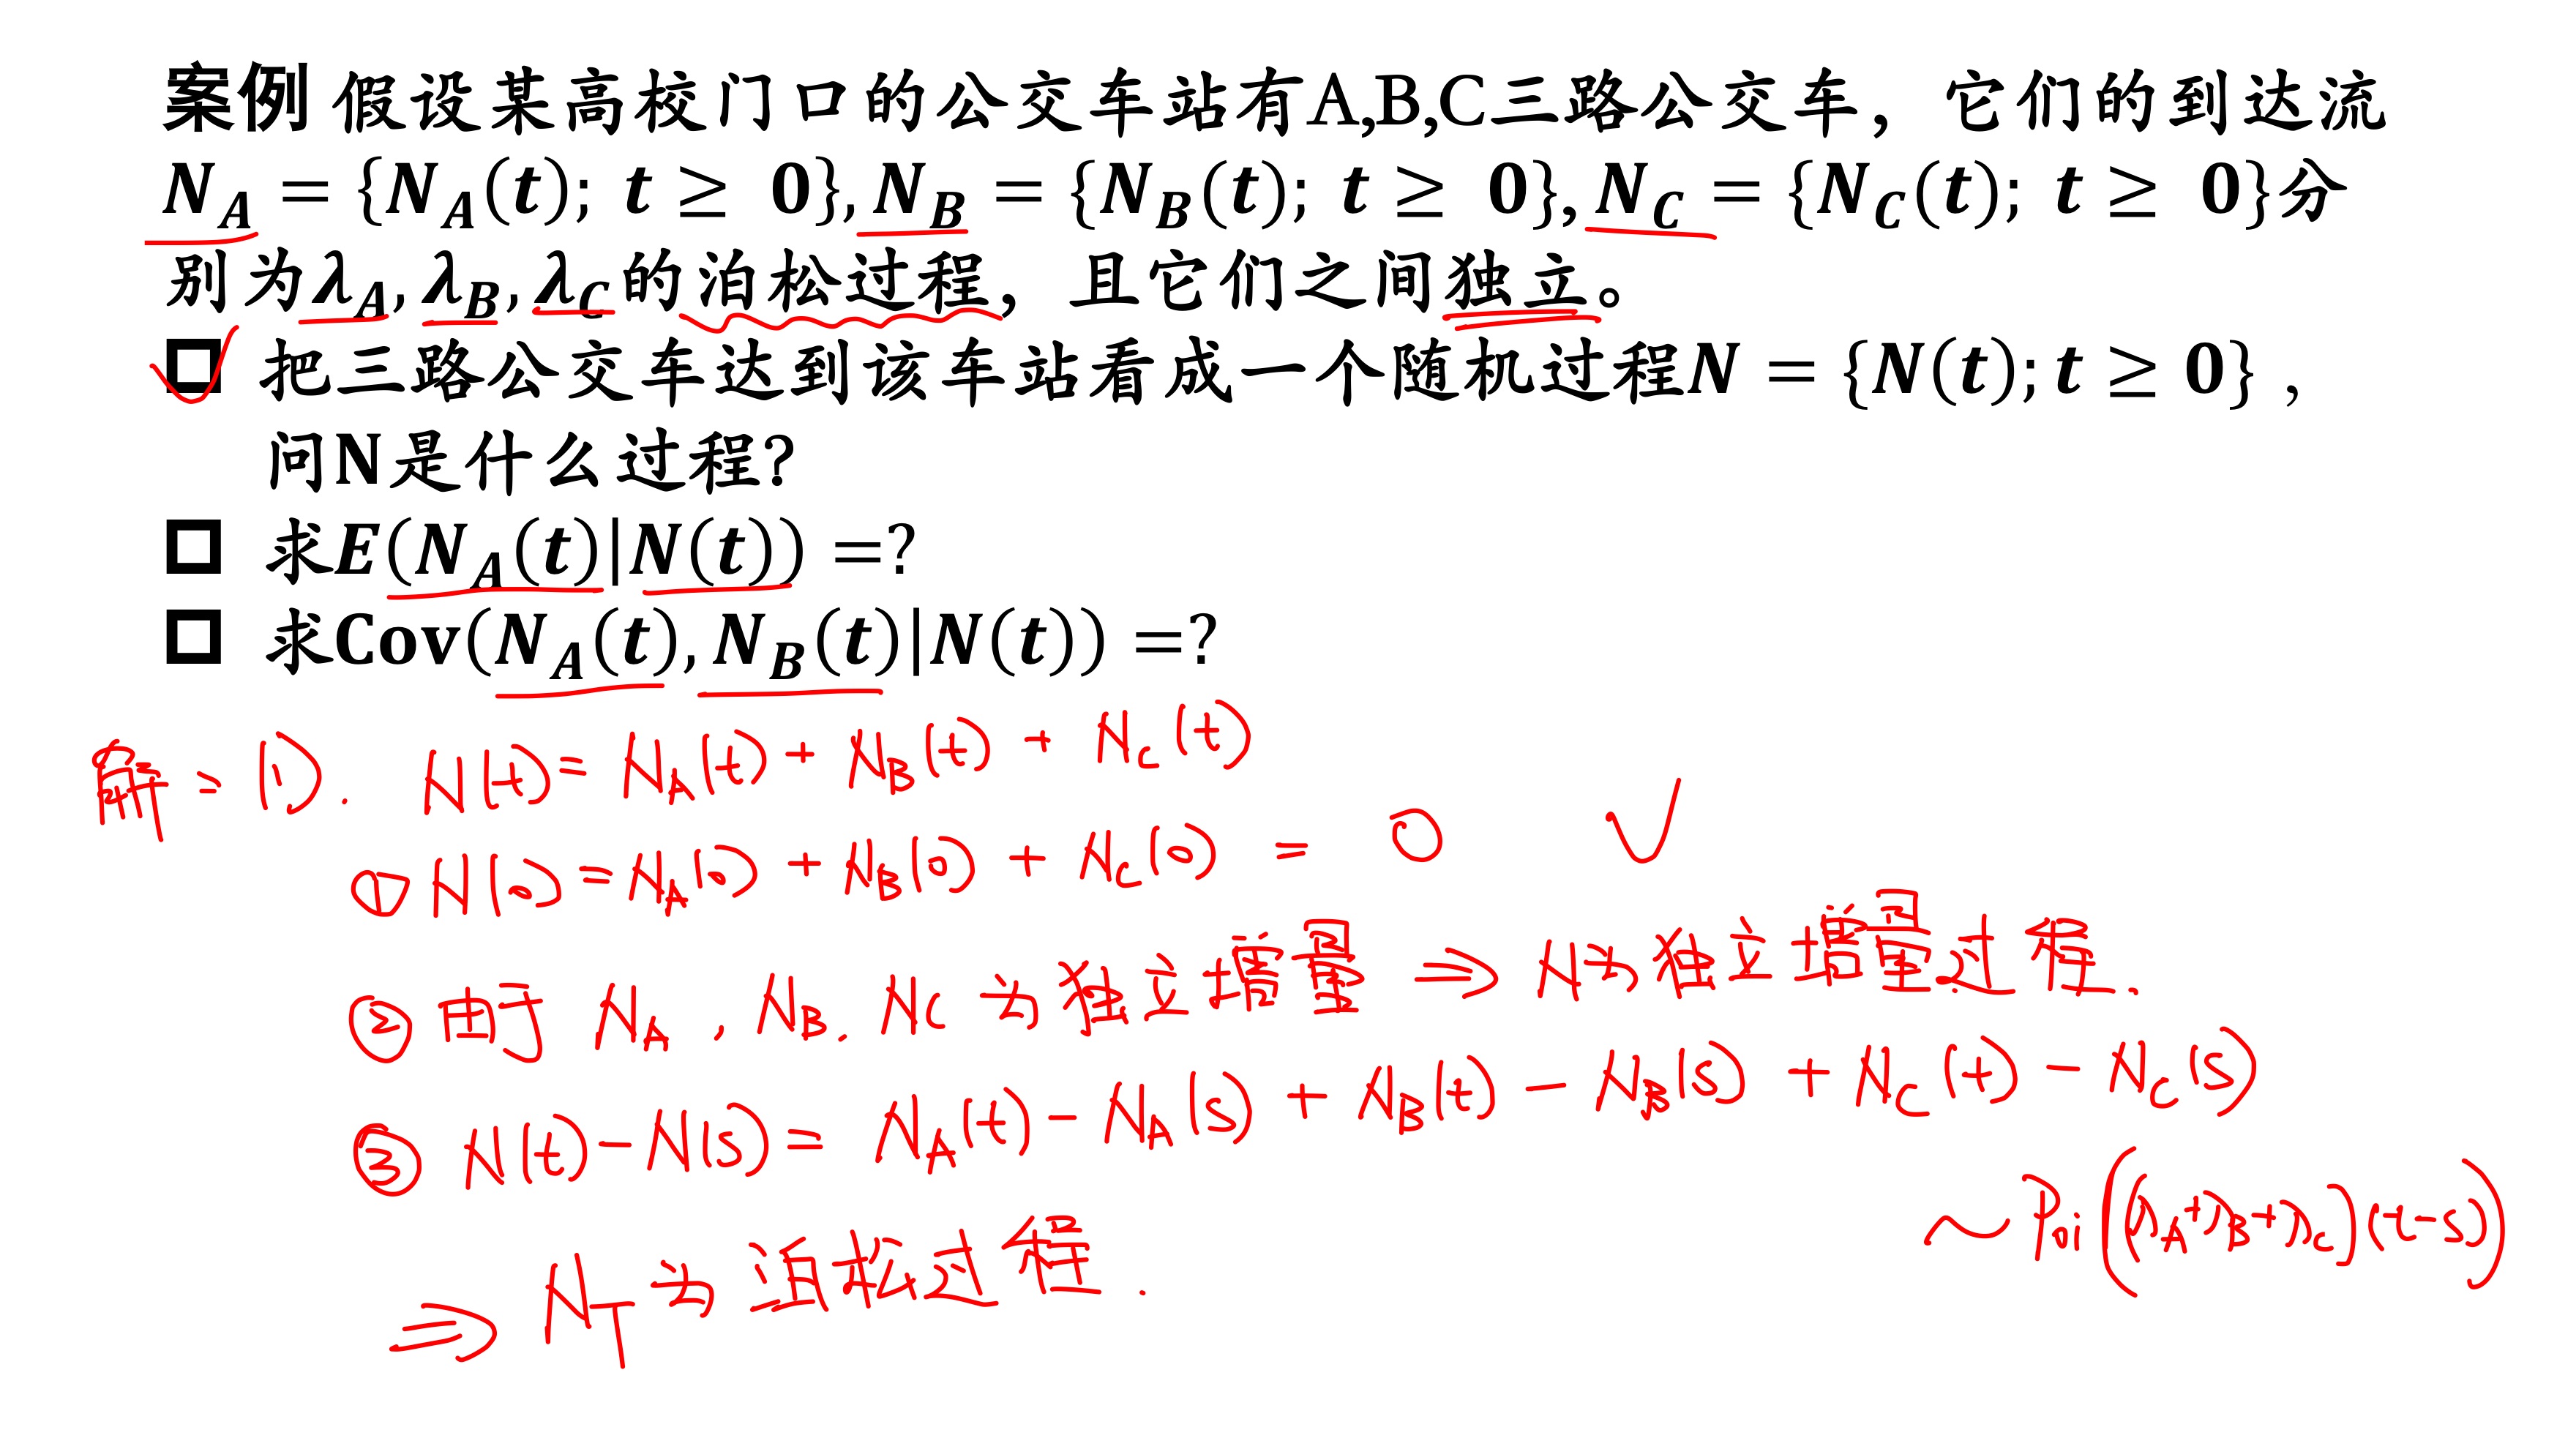 案例 假设某高校门口的公交车站有A,B,C三路公交车，它们的到达流
N_A = {N_A(t); t ≥ 0}, N_B = {N_B(t); t ≥ 0}, N_C = {N_C(t); t ≥ 0}分
别为λ_A, λ_B, λ_C的泊松过程，且它们之间独立。
把三路公交车达到该车站看成一个随机过程N = {N(t); t ≥ 0}，
问N是什么过程?
求E(N_A(t)|N(t)) =?
求Cov(N_A(t), N_B(t)|N(t)) =?
解: (1). N(t) = N_A(t) + N_B(t) + N_C(t)
① N(0) = N_A(0) + N_B(0) + N_C(0) = 0 ✓
② 由于 N_A, N_B, N_C 为独立增量 ⇒ N为独立增量过程.
③ N(t)-N(s) = N_A(t) - N_A(s) + N_B(t) - N_B(s) + N_C(t) - N_C(s)
~ Poi((λ_A+λ_B+λ_C)(t-s))
⇒ N_T 为泊松过程.